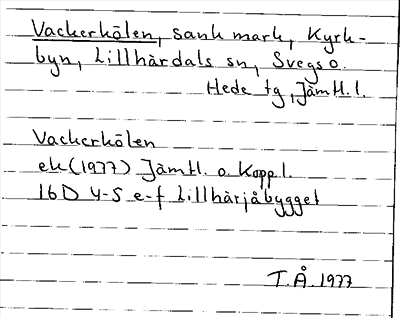 Vackerkölen, sank mark, Kyrk-
byn, Lillhärdals sn, Svegs o.
Hede tg, Jämtl. l.
Vackerkölen
ek (1977) Jämtl. o. Kopp. l.
16D 4-5 e-f Lillhärjåbygget
T. Å. 1977